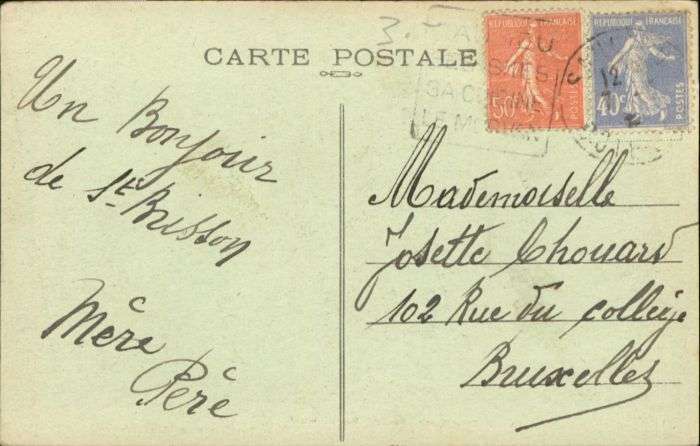 CARTE POSTALE
Un Bonjour
de St Brisson
Mère
Père
REPUBLIQUE FRANÇAISE
50c
POSTES
REPUBLIQUE FRANÇAISE
40c
POSTES
12
SA CUISINE
LE MORVAN
Mademoiselle
Josette Chouard
102 Rue du college
Bruxelles